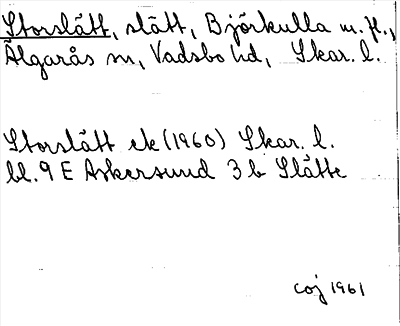 Storslätt, slätt, Björkulla m.fl.,
Älgarås sn, Vadsbo hd, Skar. l.
Storslätt ek (1960) Skar. l.
bl. 9 E Askersund 3 b Slätte
coj 1961